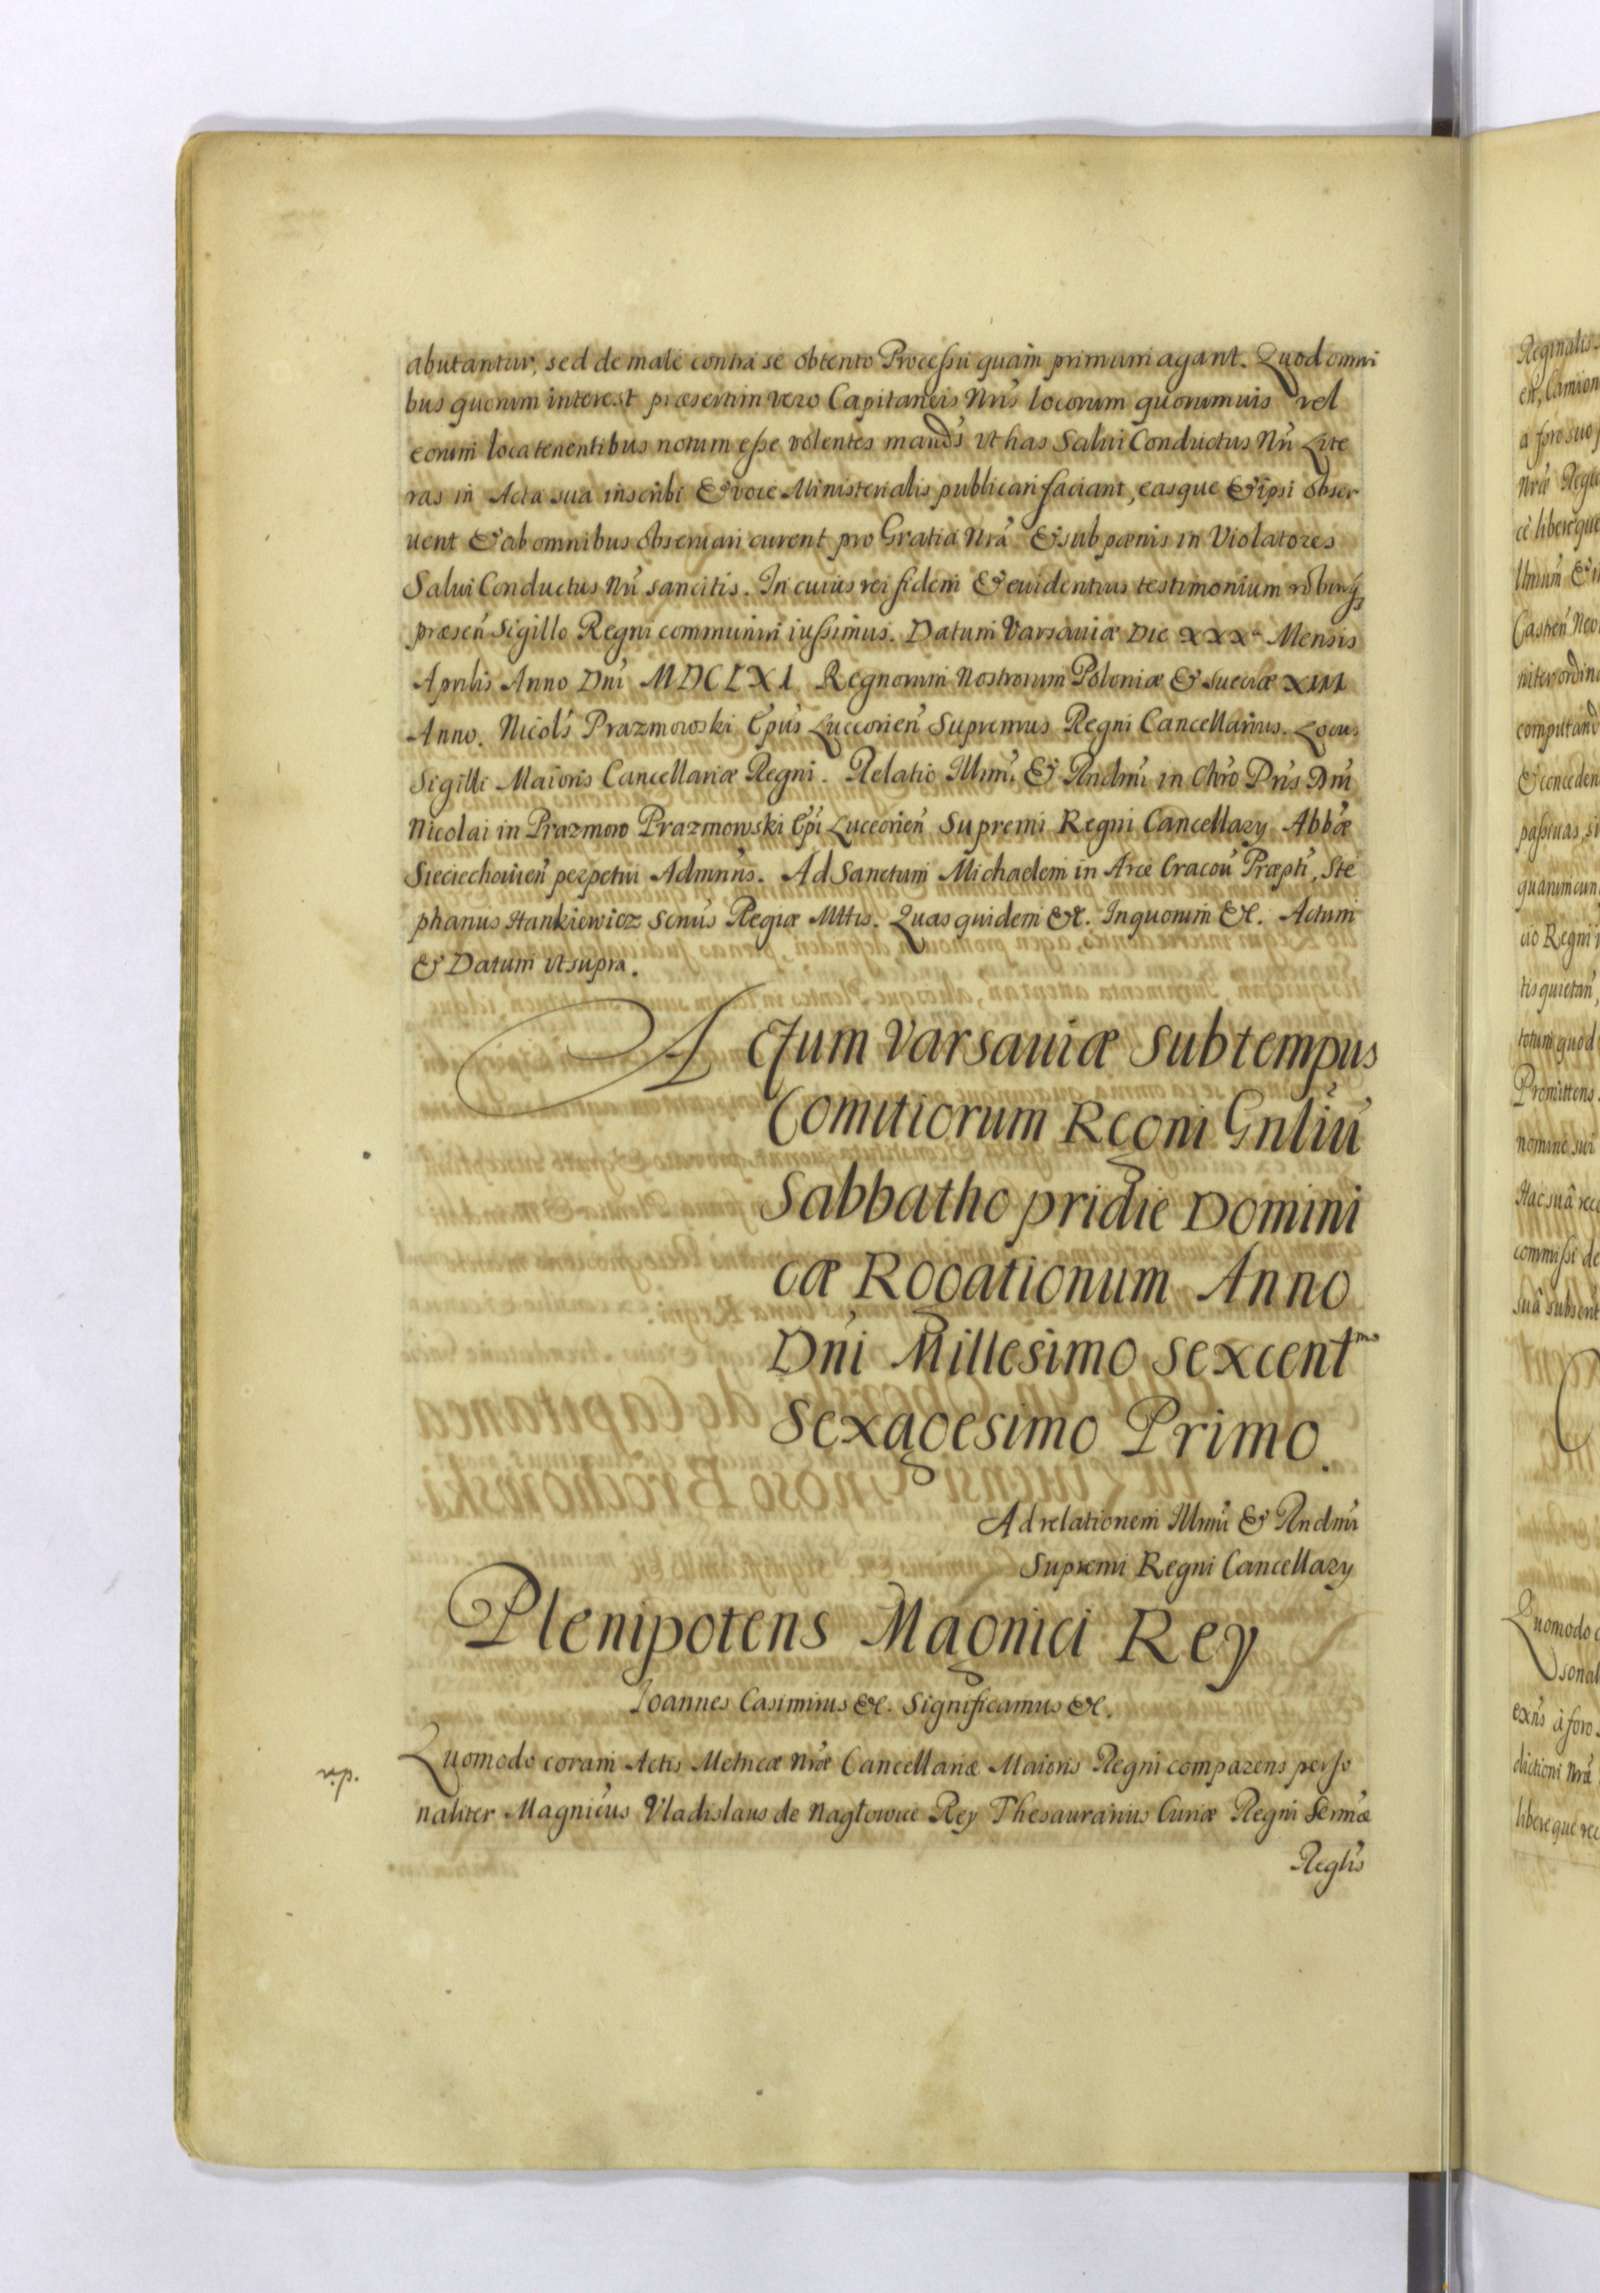 abutantur, sed de male contra se obtento Processu quam primum agant. Quod omni
bus quorum interest præsertim vero Capitaneis Nris locorum quorumuis vel
eorum locatenentibus notum esse volentes mands vt has Salui Conductus Nri Lite
ras in Acta sua inscribi & voce Ministerialis publicari faciant, easque & ipsi obser
uent & ab omnibus obseruari curent pro Gratia Nra & sub pœnis in Violatores
Salui Conductus Nri sancitis. In cuius rei fidem & euidentius testimonium
præsen Sigillo Regni communiri iussimus. Datum Varsauiæ Die XXXa Mensis
Aprilis Anno Dni MDCLXI Regnorum Nostrorum Poloniæ & Sueciæ XIII
Anno. Nicols Prazmowski Epus Luceorien Supremus Regni Cancellarius. Locus
Sigilli Maioris Cancellariæ Regni. Relatio Illmi & Rndmi in Chro Pris Dni
Nicolai in Prazmow Prazmowski Epi Luceorien Supremi Regni Cancellary Abbæ
Sieciechouien perpetui Admnris. Ad Sanctum Michaelem in Arce Cracou Præpti, Ste
phanus Hankiewicz Secrius Regiæ Mttis. Quas quidem &c. In quorum &c. Actum
& Datum vt supra.
Actum Varsauiæ sub tempus
Comitiorum Regni Gnliu
Sabbatho pridie Domini
cæ Rogationum Anno
Dni Millesimo sexcentmo
Sexagesimo Primo.
Ad relationem Illmi & Rndmi
Supremi Regni Cancellary
Plenipotens Magnici Rey
Ioannes Casimirus &c. Significamus &c.
Quomodo coram Actis Metricæ Nræ Cancellariæ Maioris Regni comparens perso
naliter Magnicus Vladislaus de Nagłowice Rey Thesaurarius Curiæ Regni Sermæ
Reglis